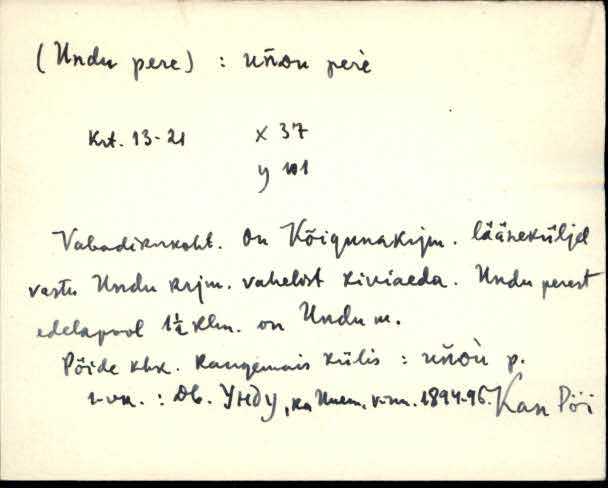 (Undu pere) : uñdu perè
Krt. 13-21 x 37
y 101
Vabadikukoht. On Kõigunakrjm. lääneküljel
vastu Undu krjm. vahelist kiviaeda. Undu perest
edelapool 1½ klm. on Undu m.
Pöide khk. kaugemais külis : uñdù p.
1-vn. : Дв. Унду, ka 1894-96. Kan Pöi